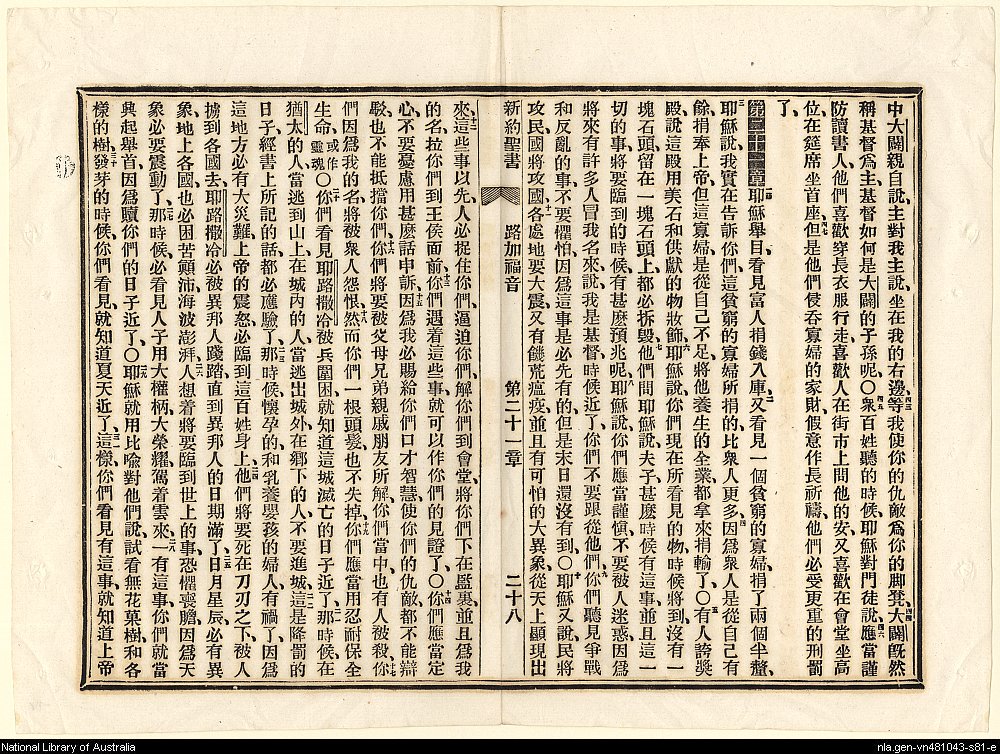 中大闢親自說、主對我主說、坐在我的右邊、等我使你的仇敵爲你的脚凳、大闢旣然
稱基督爲主、基督如何是大闢的子孫呢○衆百姓聽的時候、耶穌對門徒說、應當謹
防讀書人、他們喜歡穿長衣服行走、喜歡人在街市上問他的安、又喜歡在會堂坐高
位、在筵席坐首座、但是他們侵吞寡婦的家財、假意作長祈禱、他們必受更重的刑罰
了、
第二十一章 耶穌舉目看見富人捐錢入庫、又看見一個貧窮的寡婦、捐了兩個半釐、
耶穌說、我實在告訴你們、這貧窮的寡婦所捐的、比衆人更多、因爲衆人是從自己有
餘、捐奉上帝、但這寡婦是從自己不足、將他養生的全業都拿來捐輸了、○有人誇獎
殿、說這殿用美石和供獻的物妝飾、耶穌說、你們現在所看見的物、時候將到、沒有一
塊石頭留在一塊石頭上、都必拆毀、他們問耶穌說、夫子、甚麽時候有這事、並且這一
切的事將要臨到的時候、有甚麽預兆呢、耶穌說、你們應當謹愼、不要被人迷惑、因爲
將來有許多人冒我名來、說我是基督、時候近了、你們不要跟從他們、你們聽見爭戰
和反亂的事、不要懼怕、因爲這事是必先有的、但是末日還沒有到、○耶穌又說、民將
攻民、國將攻國、各處地要大震、又有饑荒瘟疫、並且有可怕的大異象、從天上顯現出
新約聖書 路加福音 第二十一章 二十八
來、這些事以先、人必捉住你們、逼迫你們、解你們到會堂、將你們下在監裏、並且爲我
的名、拉你們到王侯面前、你們遇着這些事、就可以作你們的見證了、○你們應當定
心、不要憂慮用甚麽話申訴、因爲我必賜給你們口才智慧、使你們的仇敵都不能辯
駁、也不能抵擋、你們將要被父母兄弟親戚朋友所解、你們當中也有人被殺、你
們因爲我的名、將被衆人怨恨、然而你們一根頭髮也不失掉、你們應當用忍耐保全
生命、或作靈魂○你們看見耶路撒冷被兵圍困、就知道這城滅亡的日子近了、那時候在
猶太的人、當逃到山上、在城內的人、當逃出城外、在鄉下的人、不要進城、這是降罰的
日子、經書上所記的話、都必應驗了、那時候懷孕的和乳養嬰孩的婦人有禍了、因爲
這地方必有大災難、上帝的震怒必臨到這百姓身上、他們將要死在刀刃之下、被人
擄到各國去、耶路撒冷必被異邦人踐踏、直到異邦人的日期滿了、日月星辰必有異
象、地上各國也必困苦顚沛、海波澎湃、人想着將要臨到世上的事、恐懼喪膽、因爲天
象必要震動了、那時候必看見人子用大權柄、大榮耀駕着雲來、一有這事、你們就當
興起舉首、因爲贖你們的日子近了、○耶穌就用比喩對他們說、試看無花菓樹、和各
樣的樹、發芽的時候、你們看見、就知道夏天近了、這樣、你們看見有這事、就知道上帝
National Library of Australia
nla.gen-vn481043-s81-e